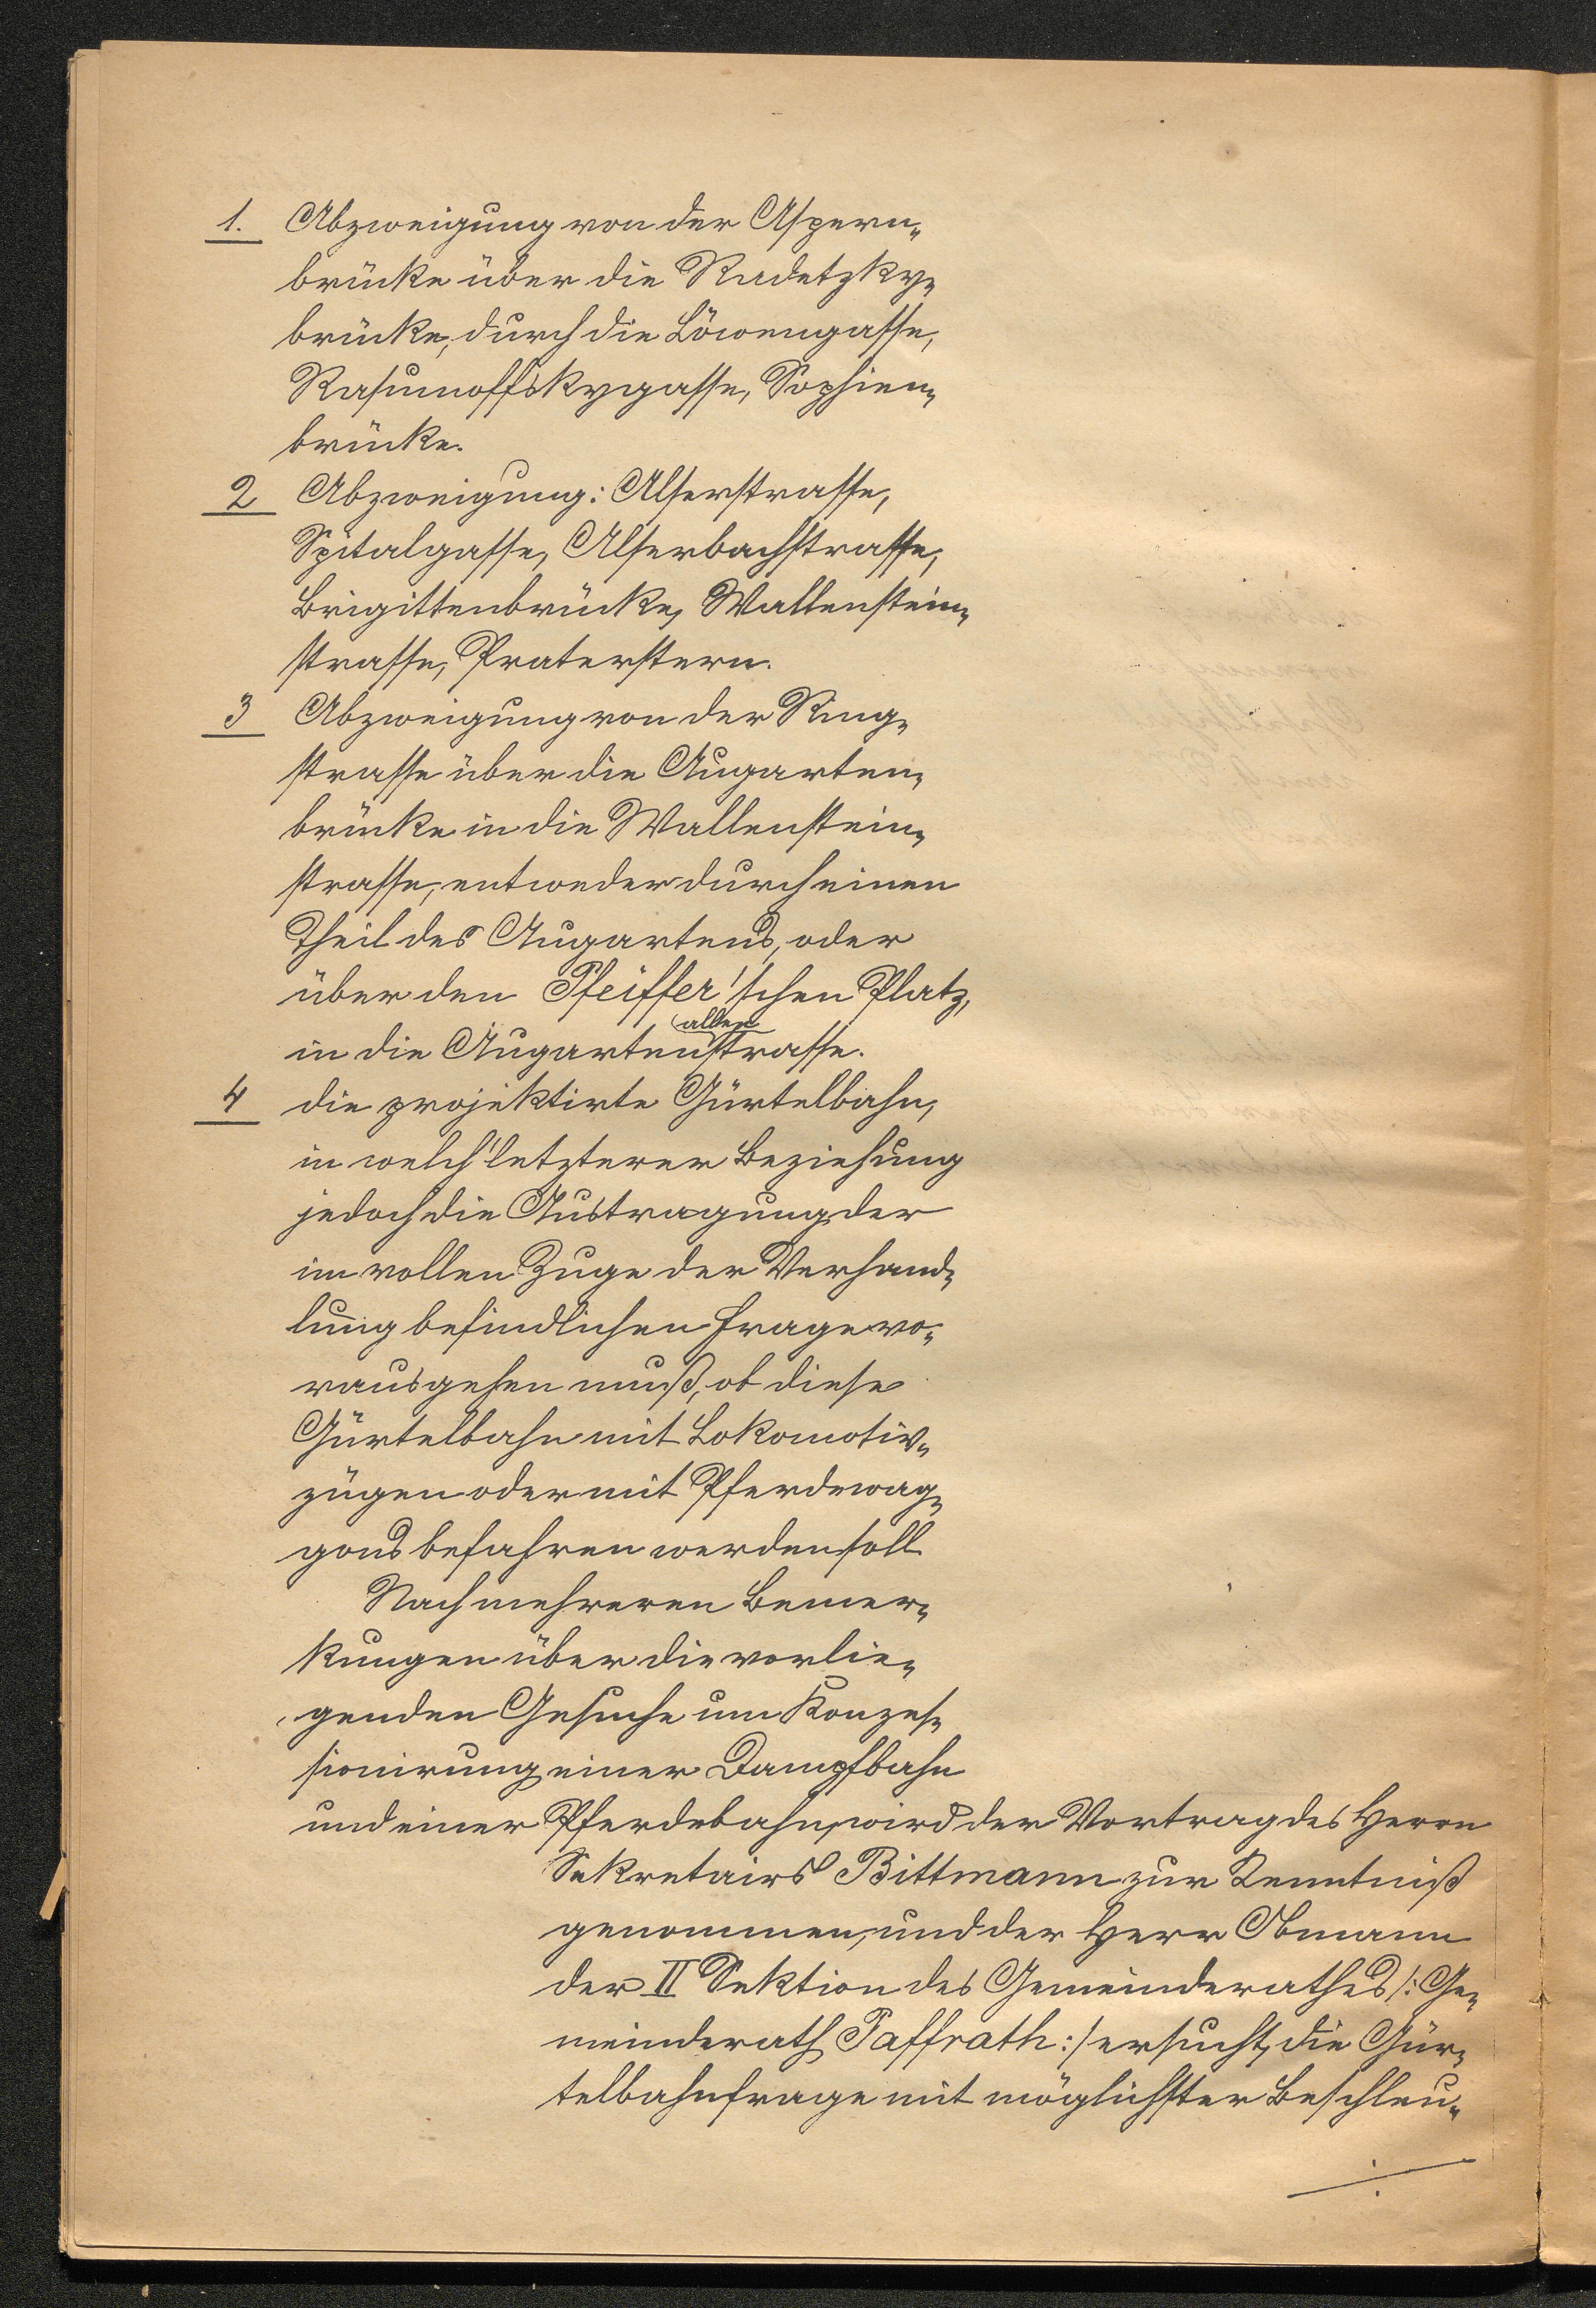 1. Abzweigung von der Aspern„
brücke über die Radetzky„
brücke, durch die Löwengasse,
Rasumoffskygasse, Sophien„
brücke.
2 Abzweigung: Alserstrasse,
Spitalgasse, Alserbachstrasse,
Brigittenbrücke, Wallenstein„
strasse, Praterstern.
3 Abzweigung von der Ring„
strasse über die Augarten„
brücke in die Wallenstein„
strasse, entweder durch einen
Theil des Augartens, oder
über den Pfeiffer'schen Platz,
allee
in die Augartenstrasse.
4 die projektirte Gürtelbahn,
in welch' letzterer Beziehung
jedoch die Austragung der
im vollen Zuge der Verhand„
lung befindlichen Frage vo„
rausgehen muß, ob diese
Gürtelbahn mit Lokomotiv„
zügen oder mit Pferdewag„
gons befahren werden soll
Nach mehreren Bemer„
kungen über die vorlie„
genden Gesuche um Konzes„
sionirung einer Dampfbahn
und einer Pferdebahn, wird der Vortrag des Herrn
Sekretairs Bittmann zur Kenntniß
genommen, und der Herr Obmann
der II Sektion des Gemeinderathes /: Ge„
meinderath Paffrath :/ ersucht, die Gür„
telbahnfrage mit möglichster Beschleu„